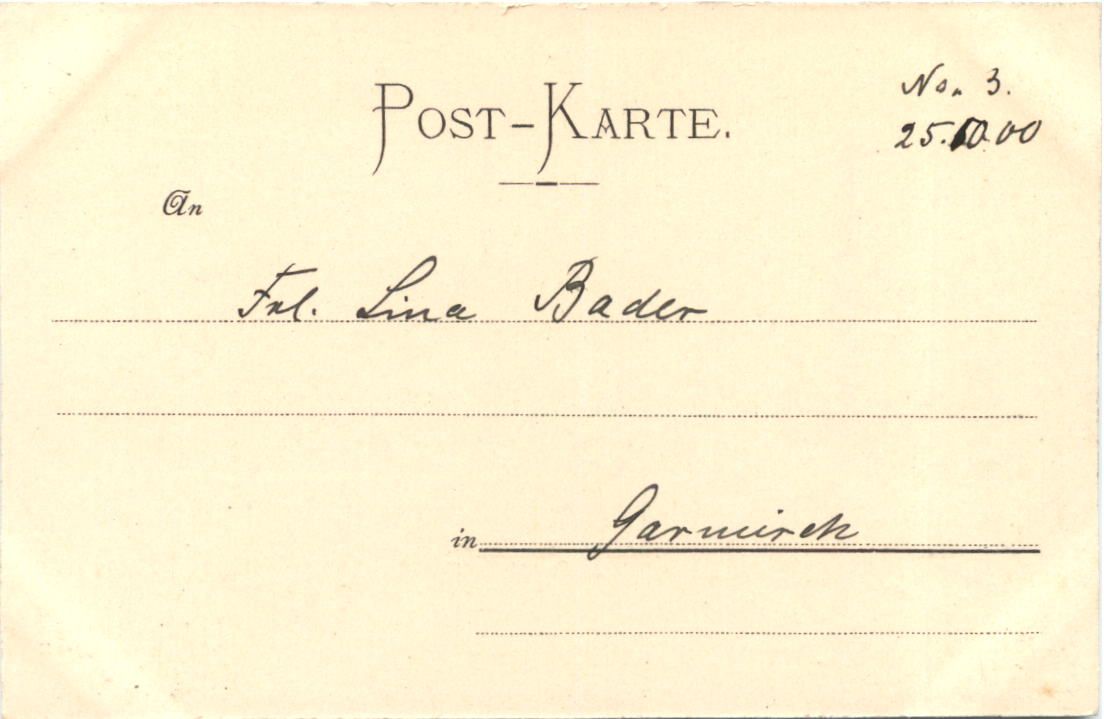 POST-KARTE.
No. 3.
25.10.00
An
Frl. Lina Bader
in Garmisch